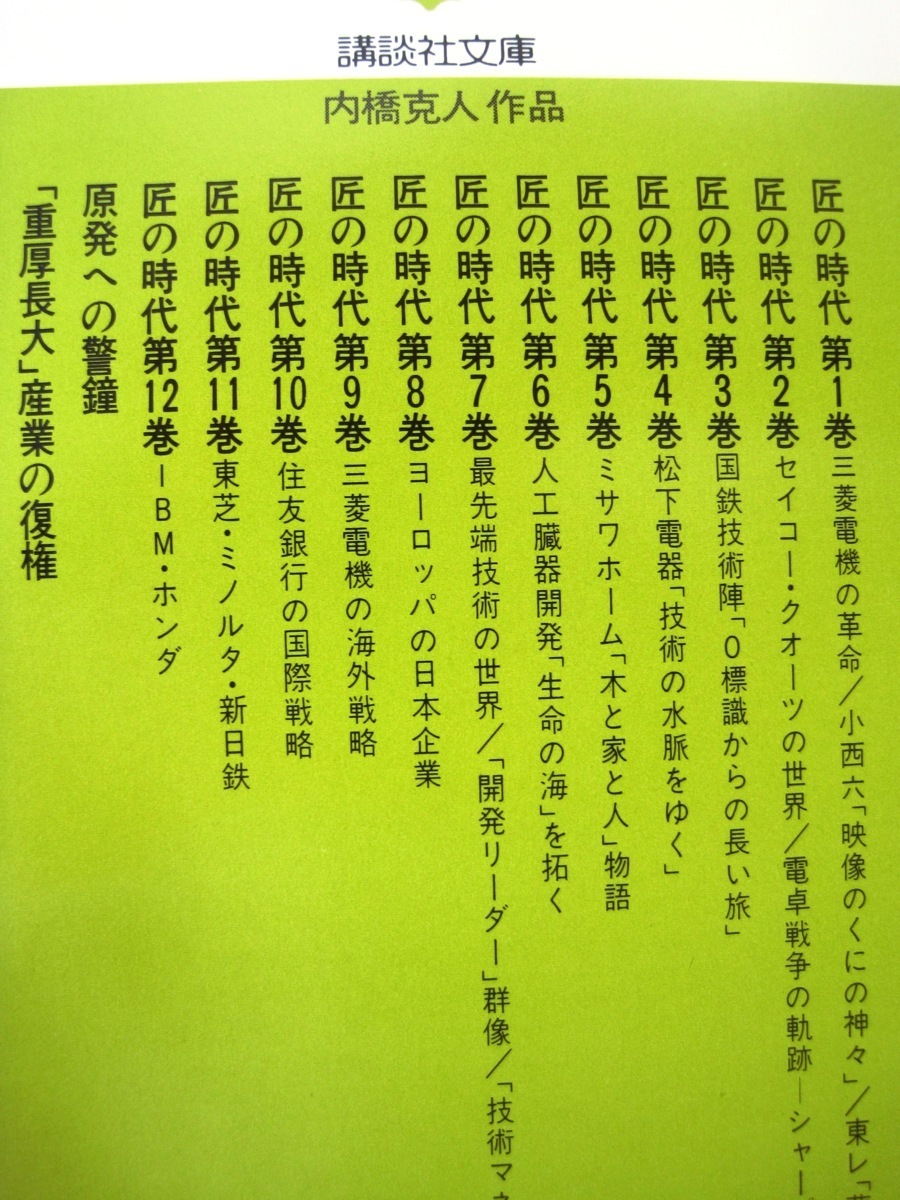 講談社文庫
内橋克人作品
匠の時代 第1巻 三菱電機の革命/小西六「映像のくにの神々」/東レ「
匠の時代 第2巻 セイコー・クオーツの世界/電卓戦争の軌跡―シャー
匠の時代 第3巻 国鉄技術陣「0標識からの長い旅」
匠の時代 第4巻 松下電器「技術の水脈をゆく」
匠の時代 第5巻 ミサワホーム「木と家と人」物語
匠の時代 第6巻 人工臓器開発「生命の海」を拓く
匠の時代 第7巻 最先端技術の世界/「開発リーダー」群像/「技術マネ
匠の時代 第8巻 ヨーロッパの日本企業
匠の時代 第9巻 三菱電機の海外戦略
匠の時代 第10巻 住友銀行の国際戦略
匠の時代 第11巻 東芝・ミノルタ・新日鉄
匠の時代 第12巻 IBM・ホンダ
原発への警鐘
「重厚長大」産業の復権